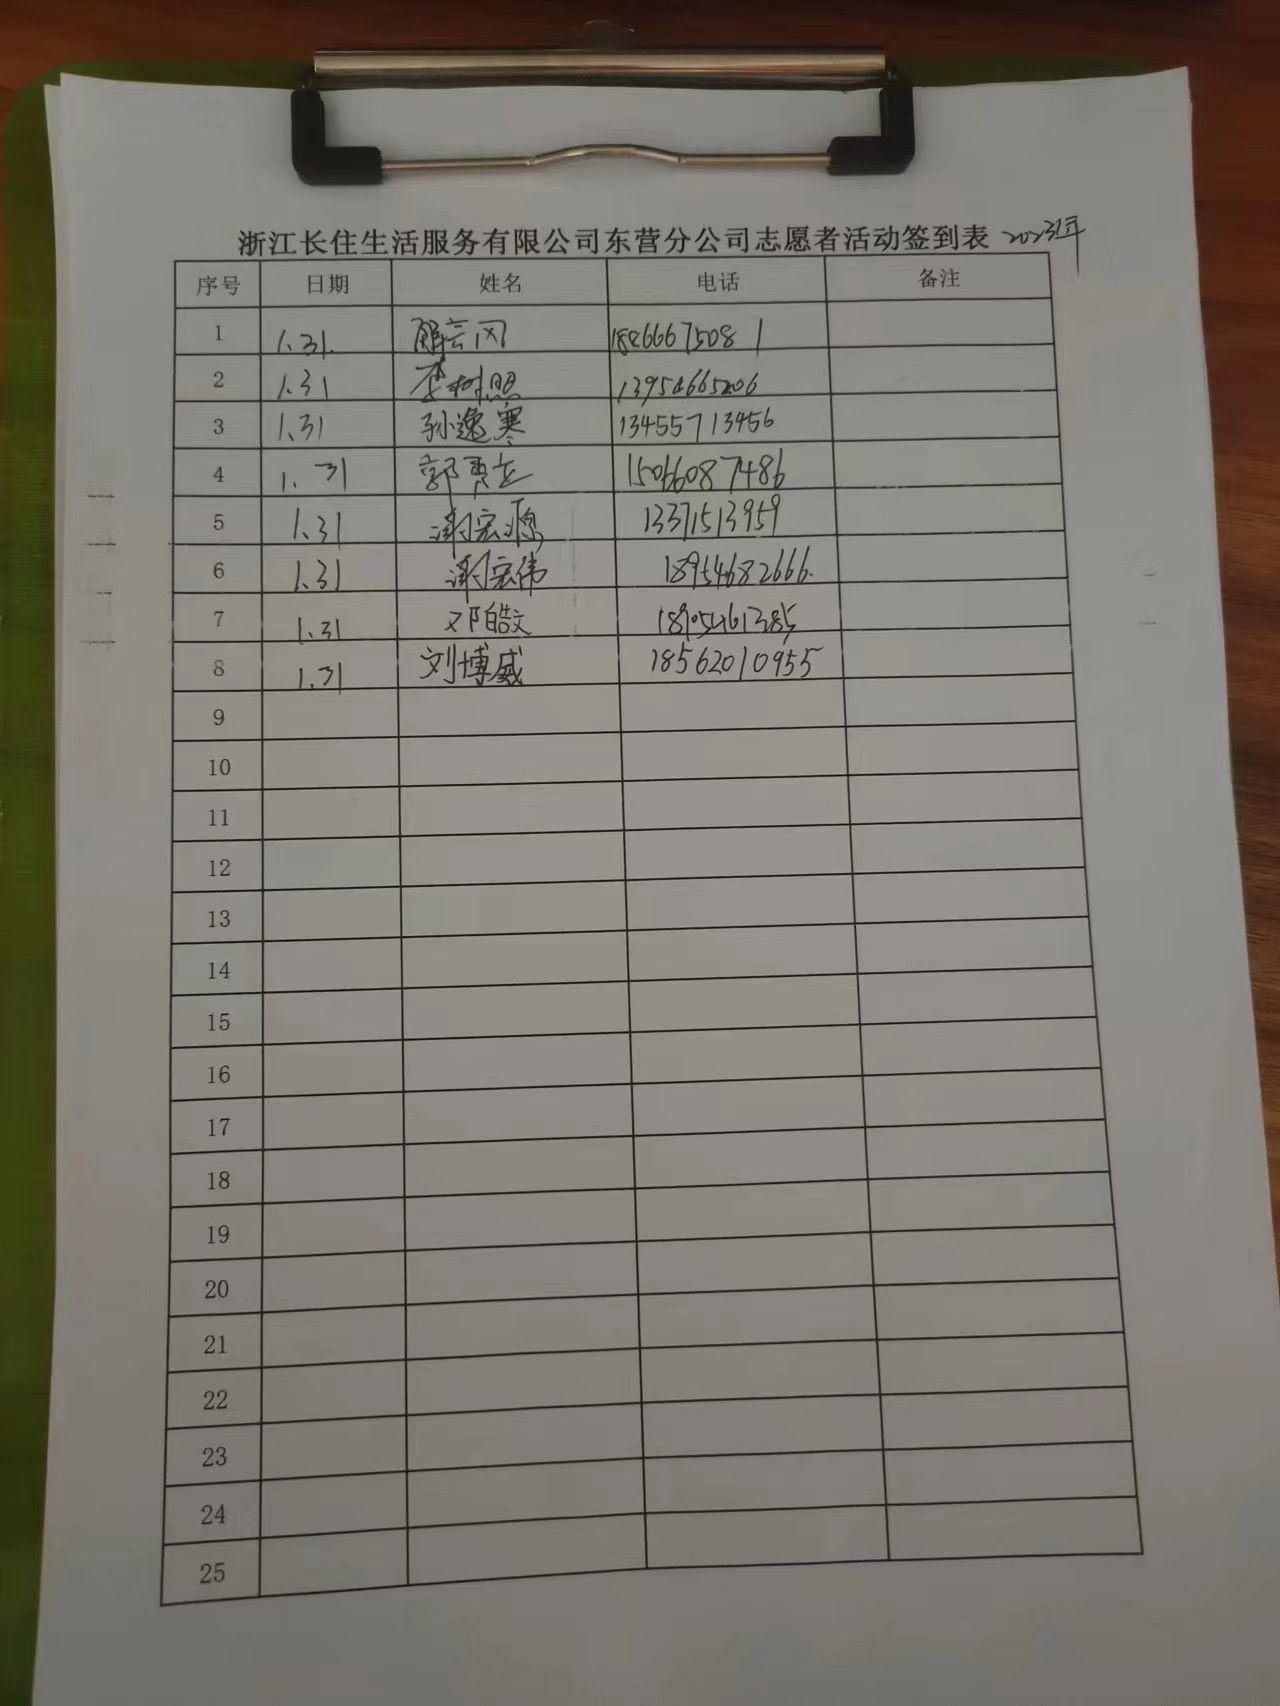 浙江长住生活服务有限公司东营分公司志愿者活动签到表 2023年
序号 日期 姓名 电话 备注
1 1.31. 解云冈
2 1.31 李树照 13954665206
3 1.31 孙逸寒 13455713456
4 1.31 郭勇志 15066087486
5 1.31 谢宏源 13371513959
6 1.31 谢宏伟 18954682666.
7 1.31 邓皓文 18905461385
8 1.31 刘博威 18562010955
9
10
11
12
13
14
15
16
17
18
19
20
21
22
23
24
25